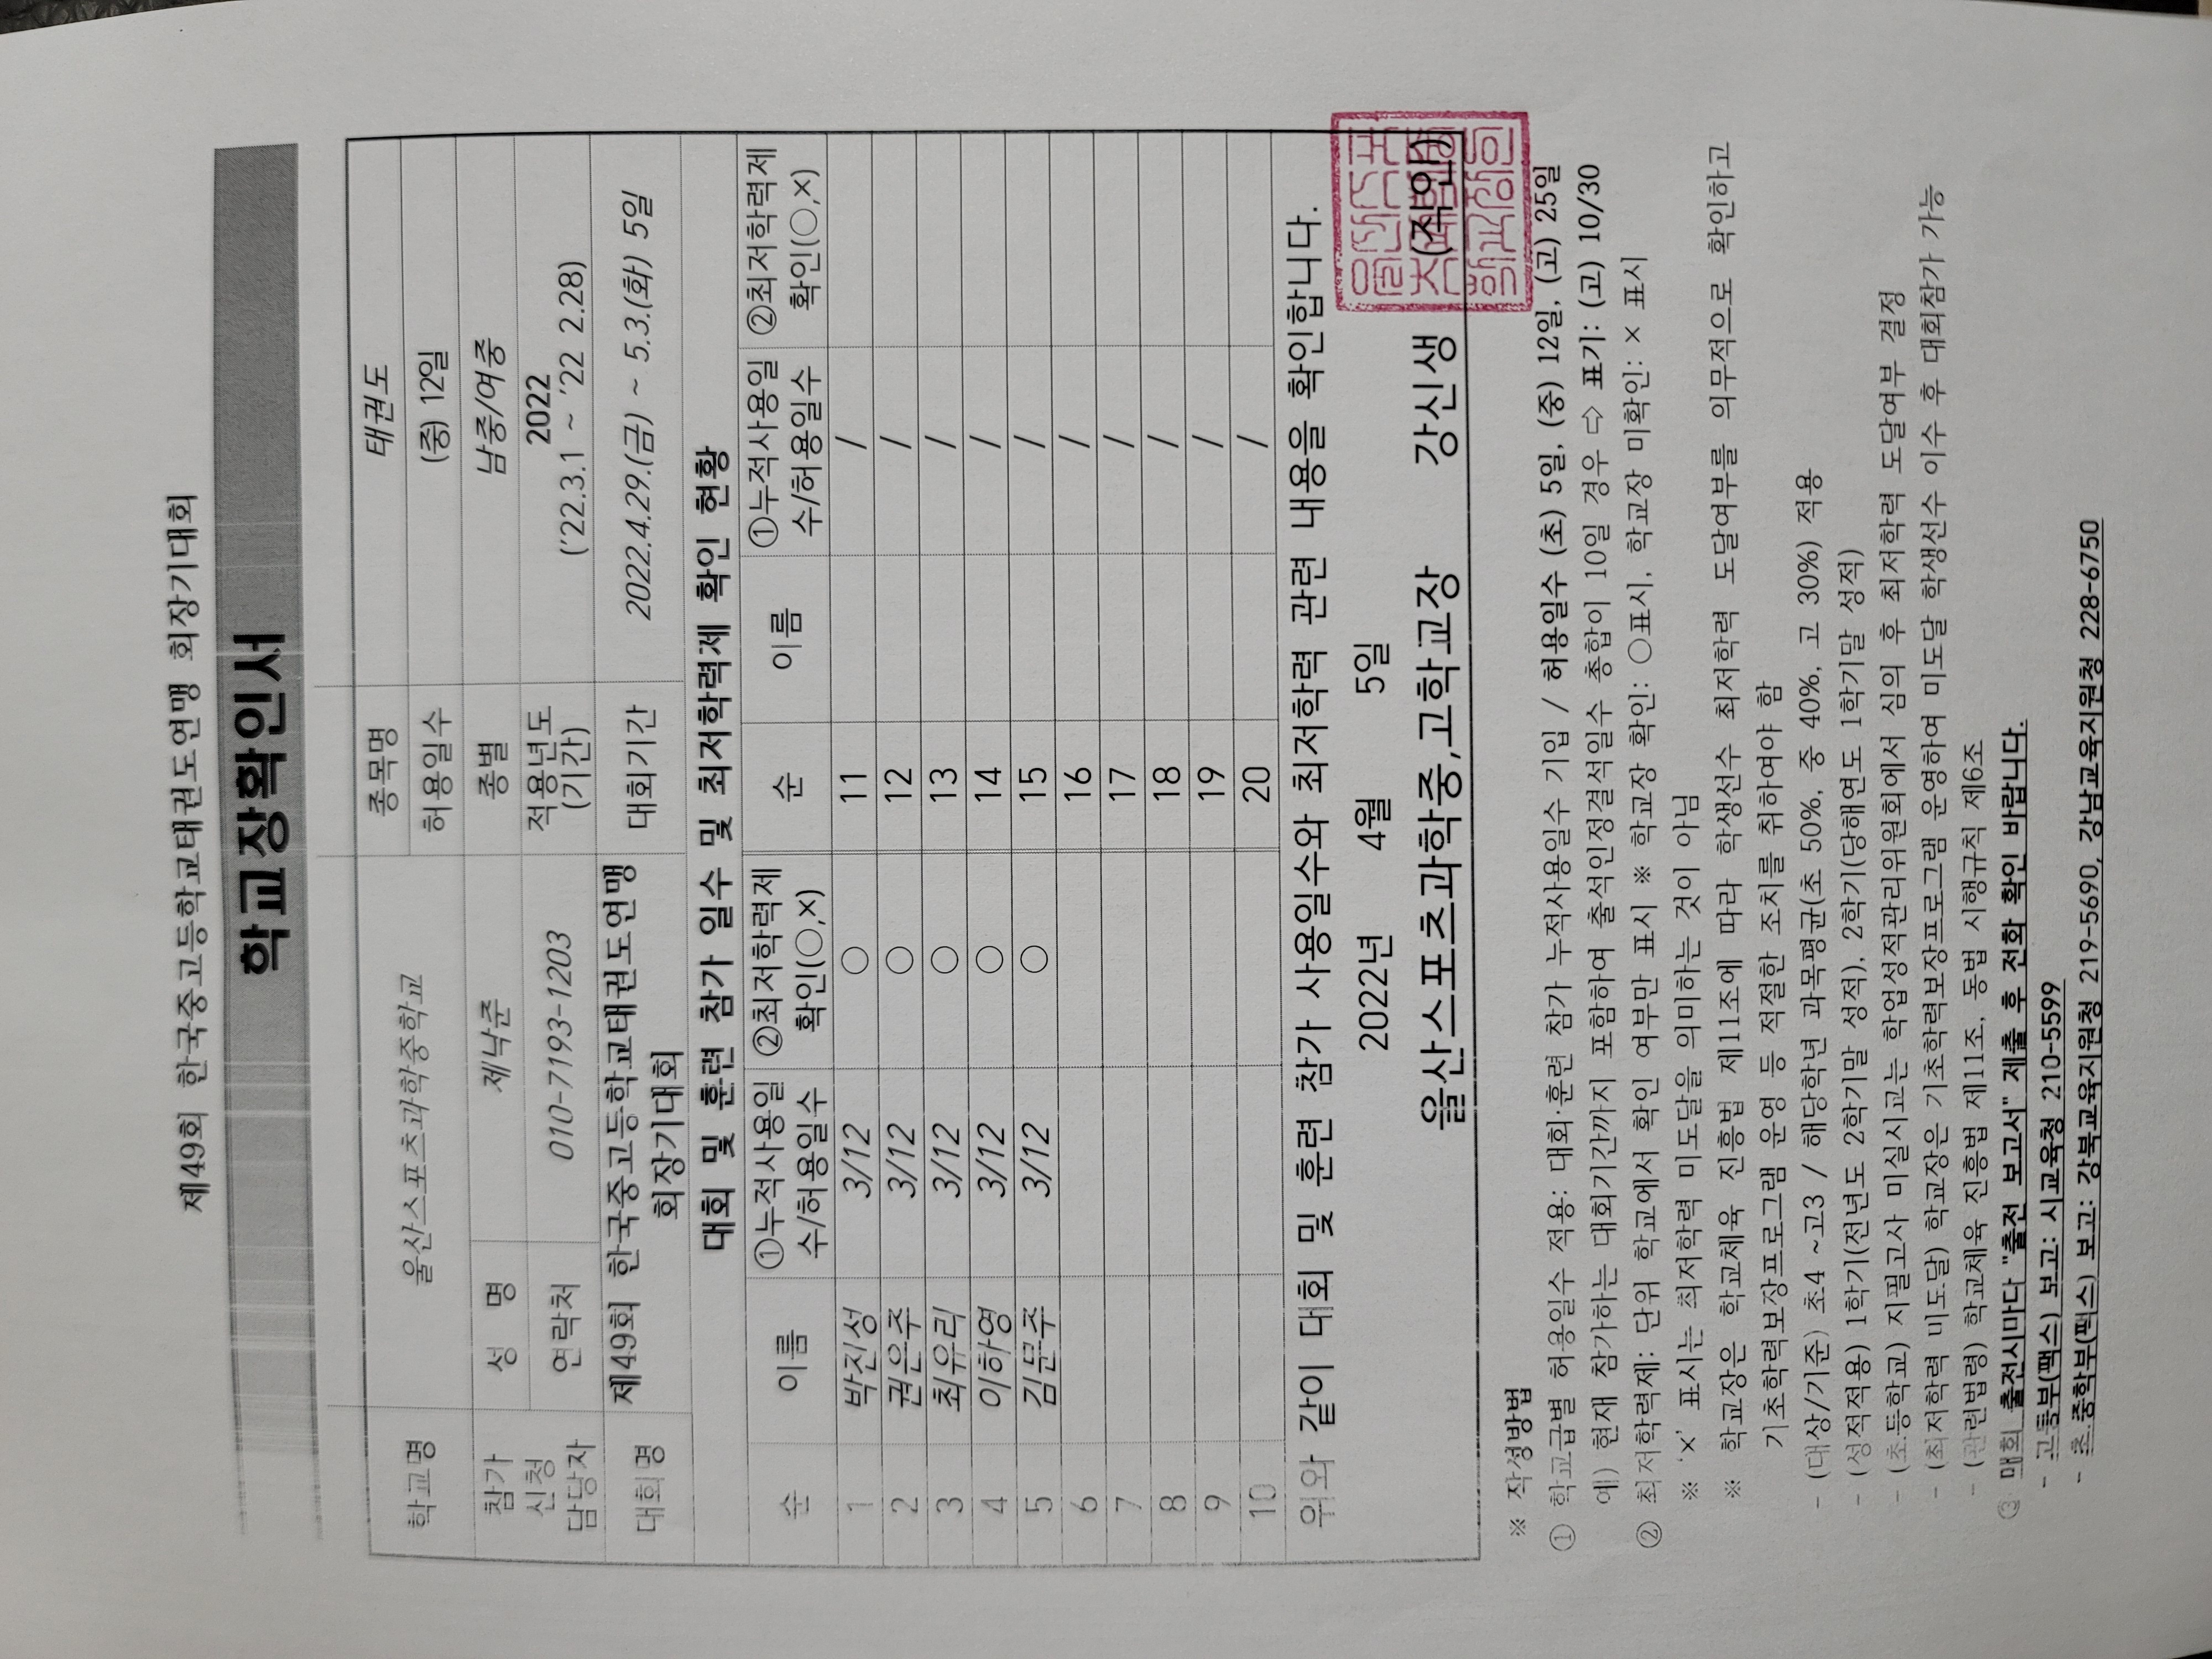 제49회 한국중고등학교태권도연맹 회장기대회
학교장확인서
학교명 울산스포츠과학중학교 종목명 태권도
허용일수 (중) 12일
참가 신청 담당자 성 명 제낙준 종별 남중/여중
연락처 010-7193-1203 적용년도 (기간) 2022 ('22.3.1 ~ '22 2.28)
대회명 제49회 한국중고등학교태권도연맹 회장기대회 대회기간 2022.4.29.(금) ~ 5.3.(화) 5일
대회 및 훈련 참가 일수 및 최저학력제 확인 현황
순 이름 ①누적사용일수/허용일수 ②최저학력제 확인(○,×) 순 이름 ①누적사용일수/허용일수 ②최저학력제 확인(○,×)
1 박진성 3/12 ○ 11 /
2 권은주 3/12 ○ 12 /
3 최유리 3/12 ○ 13 /
4 이하영 3/12 ○ 14 /
5 김문주 3/12 ○ 15 /
6 16 /
7 17 /
8 18 /
9 19 /
10 20 /
위와 같이 대회 및 훈련 참가 사용일수와 최저학력 관련 내용을 확인합니다.
2022년 4월 5일
울산스포츠과학중,고학교장 강신생 (직인)
※ 작성방법
① 학교급별 허용일수 적용: 대회·훈련 참가 누적사용일수 기입 / 허용일수 (초) 5일, (중) 12일, (고) 25일
예) 현재 참가하는 대회기간까지 포함하여 출석인정결석일수 총합이 10일 경우 ⇨ 표기: (고) 10/30
② 최저학력제: 단위 학교에서 확인 여부만 표시 ※ 학교장 확인: ○표시, 학교장 미확인: × 표시
※ '×' 표시는 최저학력 미도달을 의미하는 것이 아님
※ 학교장은 학교체육 진흥법 제11조에 따라 학생선수 최저학력 도달여부를 의무적으로 확인하고
기초학력보장프로그램 운영 등 적절한 조치를 취하여야 함
- (대상/기준) 초4 ~고3 / 해당학년 과목평균(초 50%, 중 40%, 고 30%) 적용
- (성적적용) 1학기(전년도 2학기말 성적), 2학기(당해연도 1학기말 성적)
- (초등학교) 지필고사 미실시교는 학업성적관리위원회에서 심의 후 최저학력 도달여부 결정
- (최저학력 미도달) 학교장은 기초학력보장프로그램 운영하여 미도달 학생선수 이수 후 대회참가 가능
- (관련법령) 학교체육 진흥법 제11조, 동법 시행규칙 제6조
③ 매회 출전시마다 "출전 보고서" 제출 후 전화 확인 바랍니다.
- 고등부(팩스) 보고: 시교육청 210-5599
- 초.중학부(팩스) 보고: 강북교육지원청 219-5690, 강남교육지원청 228-6750